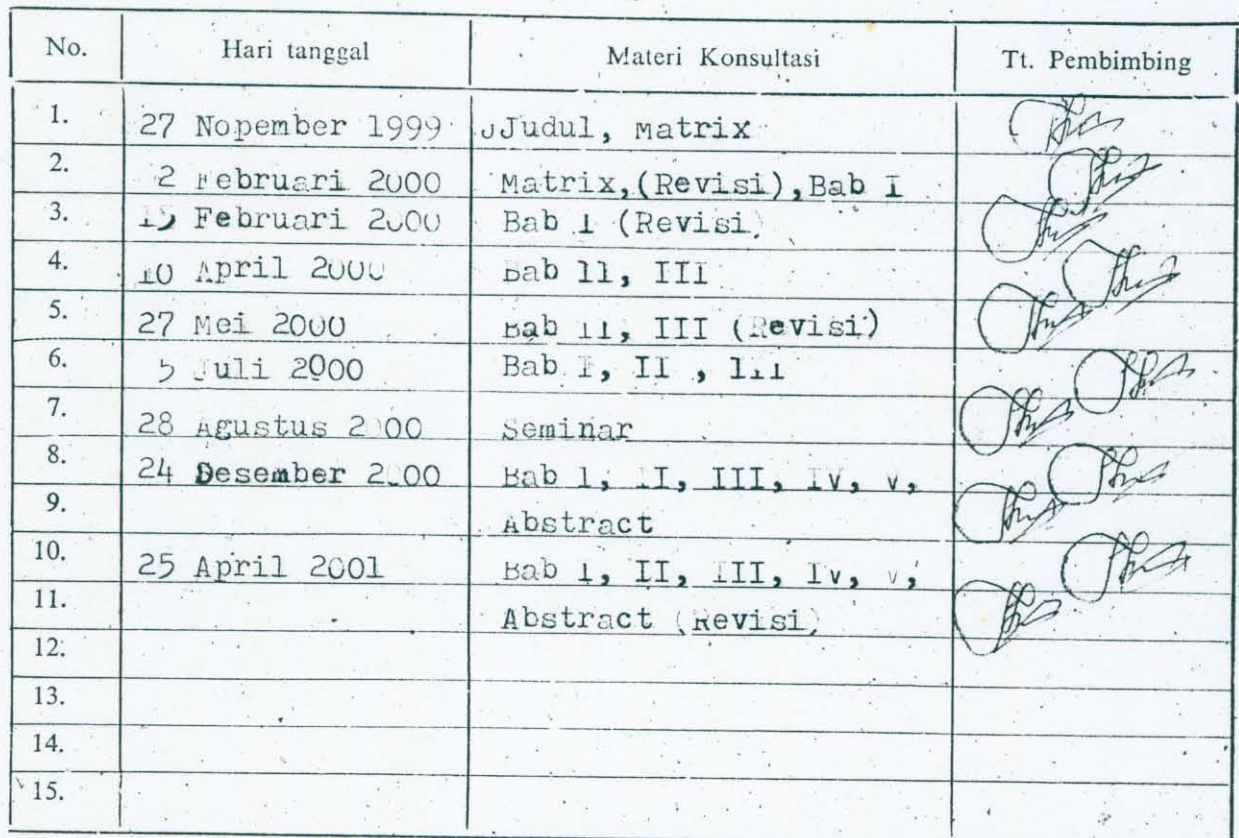 No. Hari tanggal Materi Konsultasi Tt. Pembimbing
1. 27 Nopember 1999 Judul, Matrix
2. 2 Februari 2000 Matrix,(Revisi),Bab I
3. 15 Februari 2000 Bab I (Revisi)
4. 10 April 2000 Bab II, III
5. 27 Mei 2000 Bab II, III (Revisi)
6. 5 Juli 2000 Bab I, II , III
7. 28 Agustus 2000 Seminar
8. 24 Desember 2000 Bab I, II, III, IV, V,
9. Abstract
10. 25 April 2001 Bab I, II, III, IV, V,
11. Abstract (Revisi)
12.
13.
14.
15.